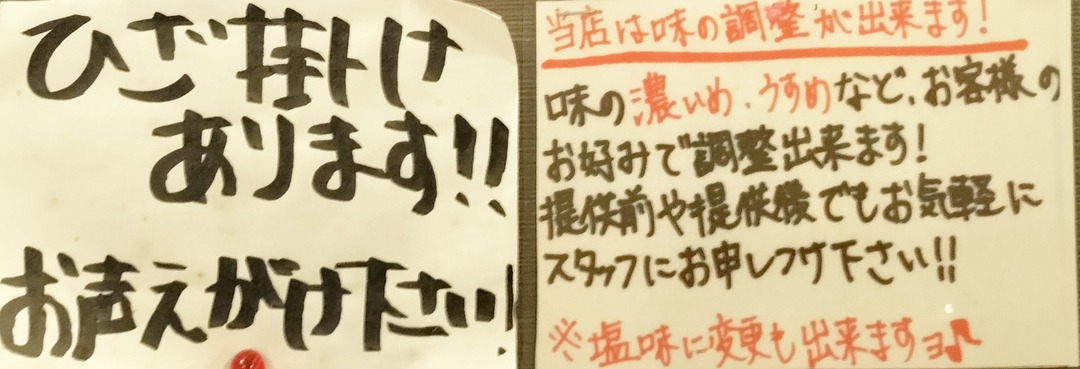 ひざ掛け
あります!!
お声えがけ下さい!
当店は味の調整が出来ます!
味の濃いめ、うすめなど、お客様の
お好みで調整出来ます!
提供前や提供後でもお気軽に
スタッフにお申しつけ下さい!!
※塩味に変更も出来ますヨ♪